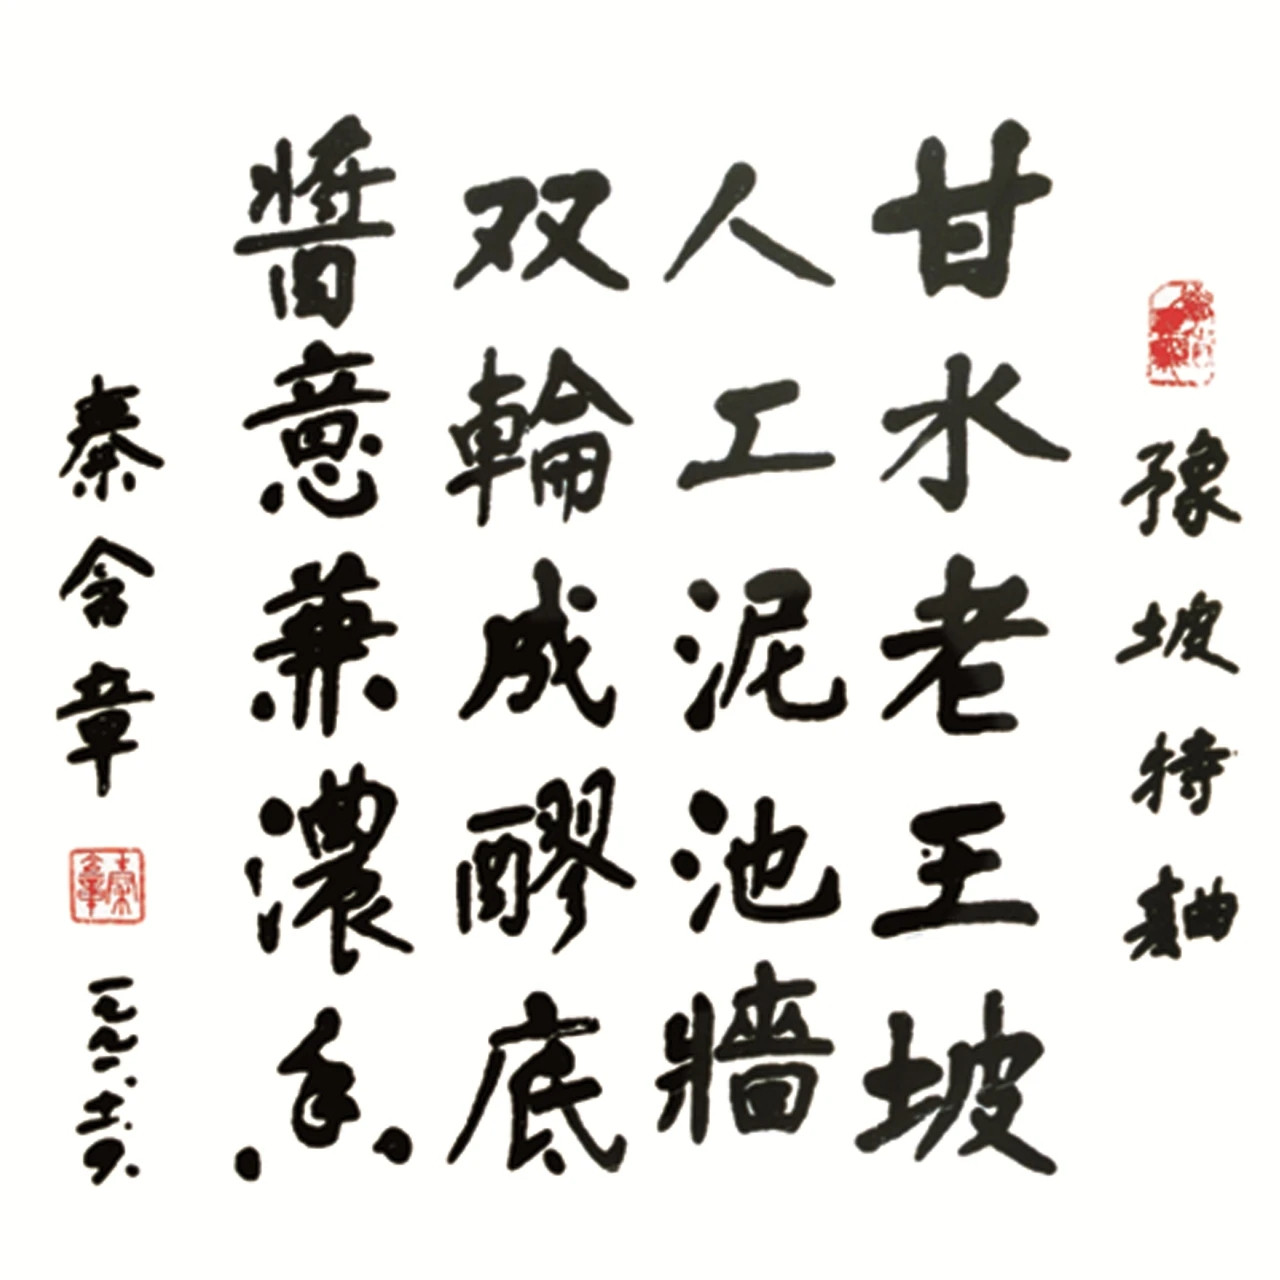 豫坡特麯
甘水老王坡
人工泥池牆
双輪成醪底
醬意兼濃香
秦含章
一九九一.十二.九.